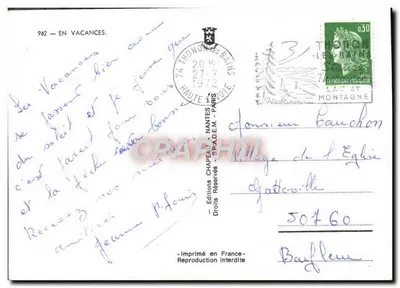 962 - EN VACANCES.
Les Vacances
se passent bien avec
du soleil et je pense que
c'est pareil pour vous
et la pêche bonne
Recevez nos
amitiés
Jeanne
Editions CHAPEAU - NANTES
Droits Réservés - S.P.A.D.E.M. - PARIS
CPARAMA.COM
74 THONON LES BAINS
HAUTE SAVOIE
THONON
LES BAINS
LAC ET
MONTAGNE
0,50
Monsieur Cauchon
Village de l'Eglise
Gatteville
50760
Barfleur
-Imprimé en France-
Reproduction interdite